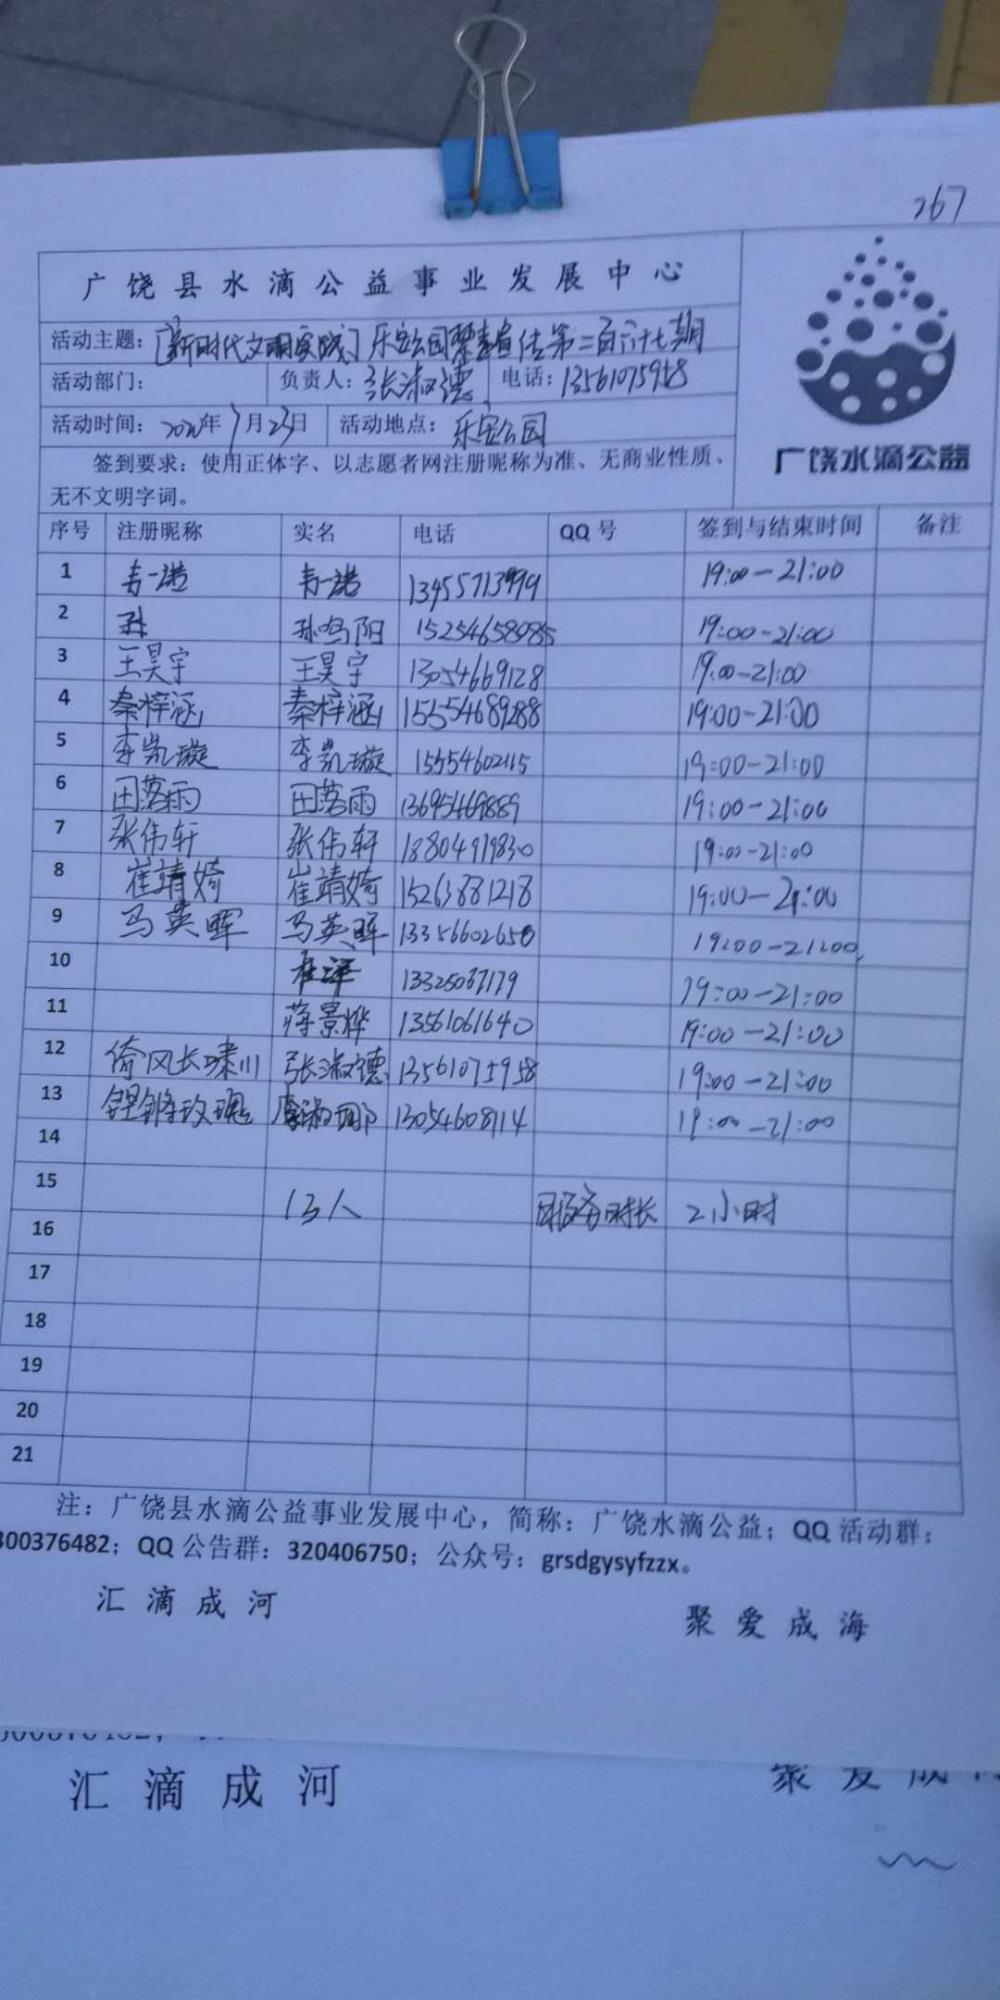 267
广饶县水滴公益事业发展中心
活动主题：[新时代文明实践]乐安公园禁毒宣传第二百六十七期
活动部门： 负责人：张淑德 电话：13561075958
活动时间： 年7月23日 活动地点：乐安公园
广饶水滴公益
签到要求：使用正体字、以志愿者网注册昵称为准、无商业性质、
无不文明字词。
序号 注册昵称 实名 电话 QQ号 签到与结束时间 备注
1 19:00-21:00
2 孙 孙鸣阳 19:00-21:00
3 王昊宇 王昊宇 13054669128 19:00-21:00
4 秦梓涵 秦梓涵 15554689288 19:00-21:00
5 李凯璇 李凯璇 19:00-21:00
6 田落雨 田落雨 13695469889 19:00-21:00
7 张伟轩 张伟轩 19:00-21:00
8 崔靖婍 崔靖婍 15263881218 19:00-21:00
9 马英晖 马英晖 13356602650 19:00-21:00
10 19:00-21:00
11 蒋景桦 13561061640 19:00-21:00
12 倚风长啸川 张淑德 13561075958 19:00-21:00
13 铿锵玫瑰 13054608114 19:00-21:00
14
15 13人 服务时长 2小时
16
17
18
19
20
21
注：广饶县水滴公益事业发展中心，简称：广饶水滴公益；QQ活动群：
300376482；QQ公告群：320406750；公众号：grsdgysyfzzx。
汇滴成河 聚爱成海
汇滴成河 聚爱成